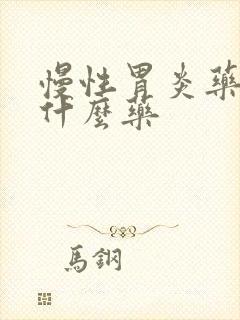 慢性胃炎藥
什麼藥
馬鋼